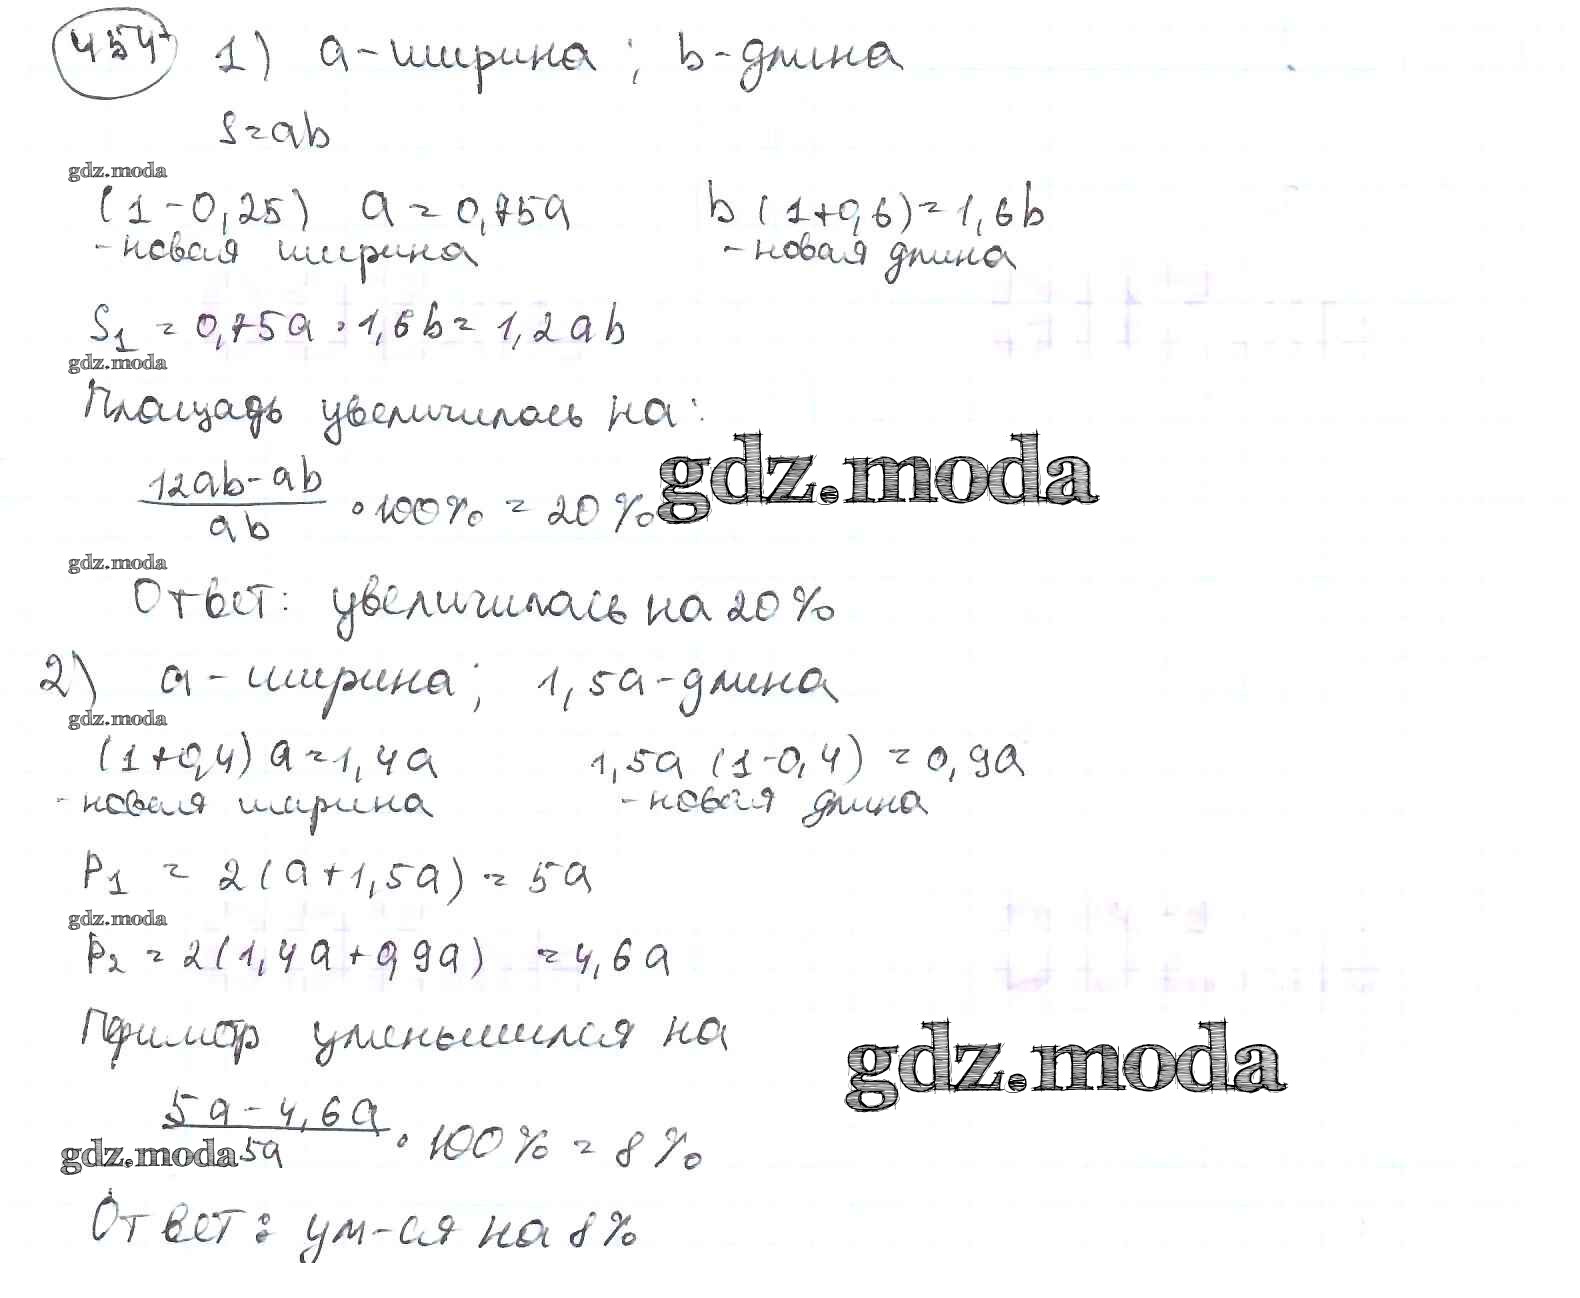 454 1) a - ширина ; b - длина
S = ab
gdz.moda
(1 - 0,25) a = 0,75a b (1+0,6) = 1,6b
- новая ширина - новая длина
S₁ = 0,75a · 1,6b = 1,2ab
gdz.moda
Площадь увеличилась на:
12ab - ab
gdz.moda
· 100% = 20%
ab
gdz.moda
Ответ: увеличилась на 20%
2) a - ширина; 1,5a - длина
gdz.moda
(1+0,4) a = 1,4a 1,5a (1-0,4) = 0,9a
- новая ширина - новая длина
P₁ = 2(a+1,5a) = 5a
gdz.moda
P₂ = 2(1,4a+0,9a) = 4,6a
уменьшился на
gdz.moda
5a - 4,6a
· 100% = 8%
gdz.moda 5a
Ответ: ум-ся на 8%